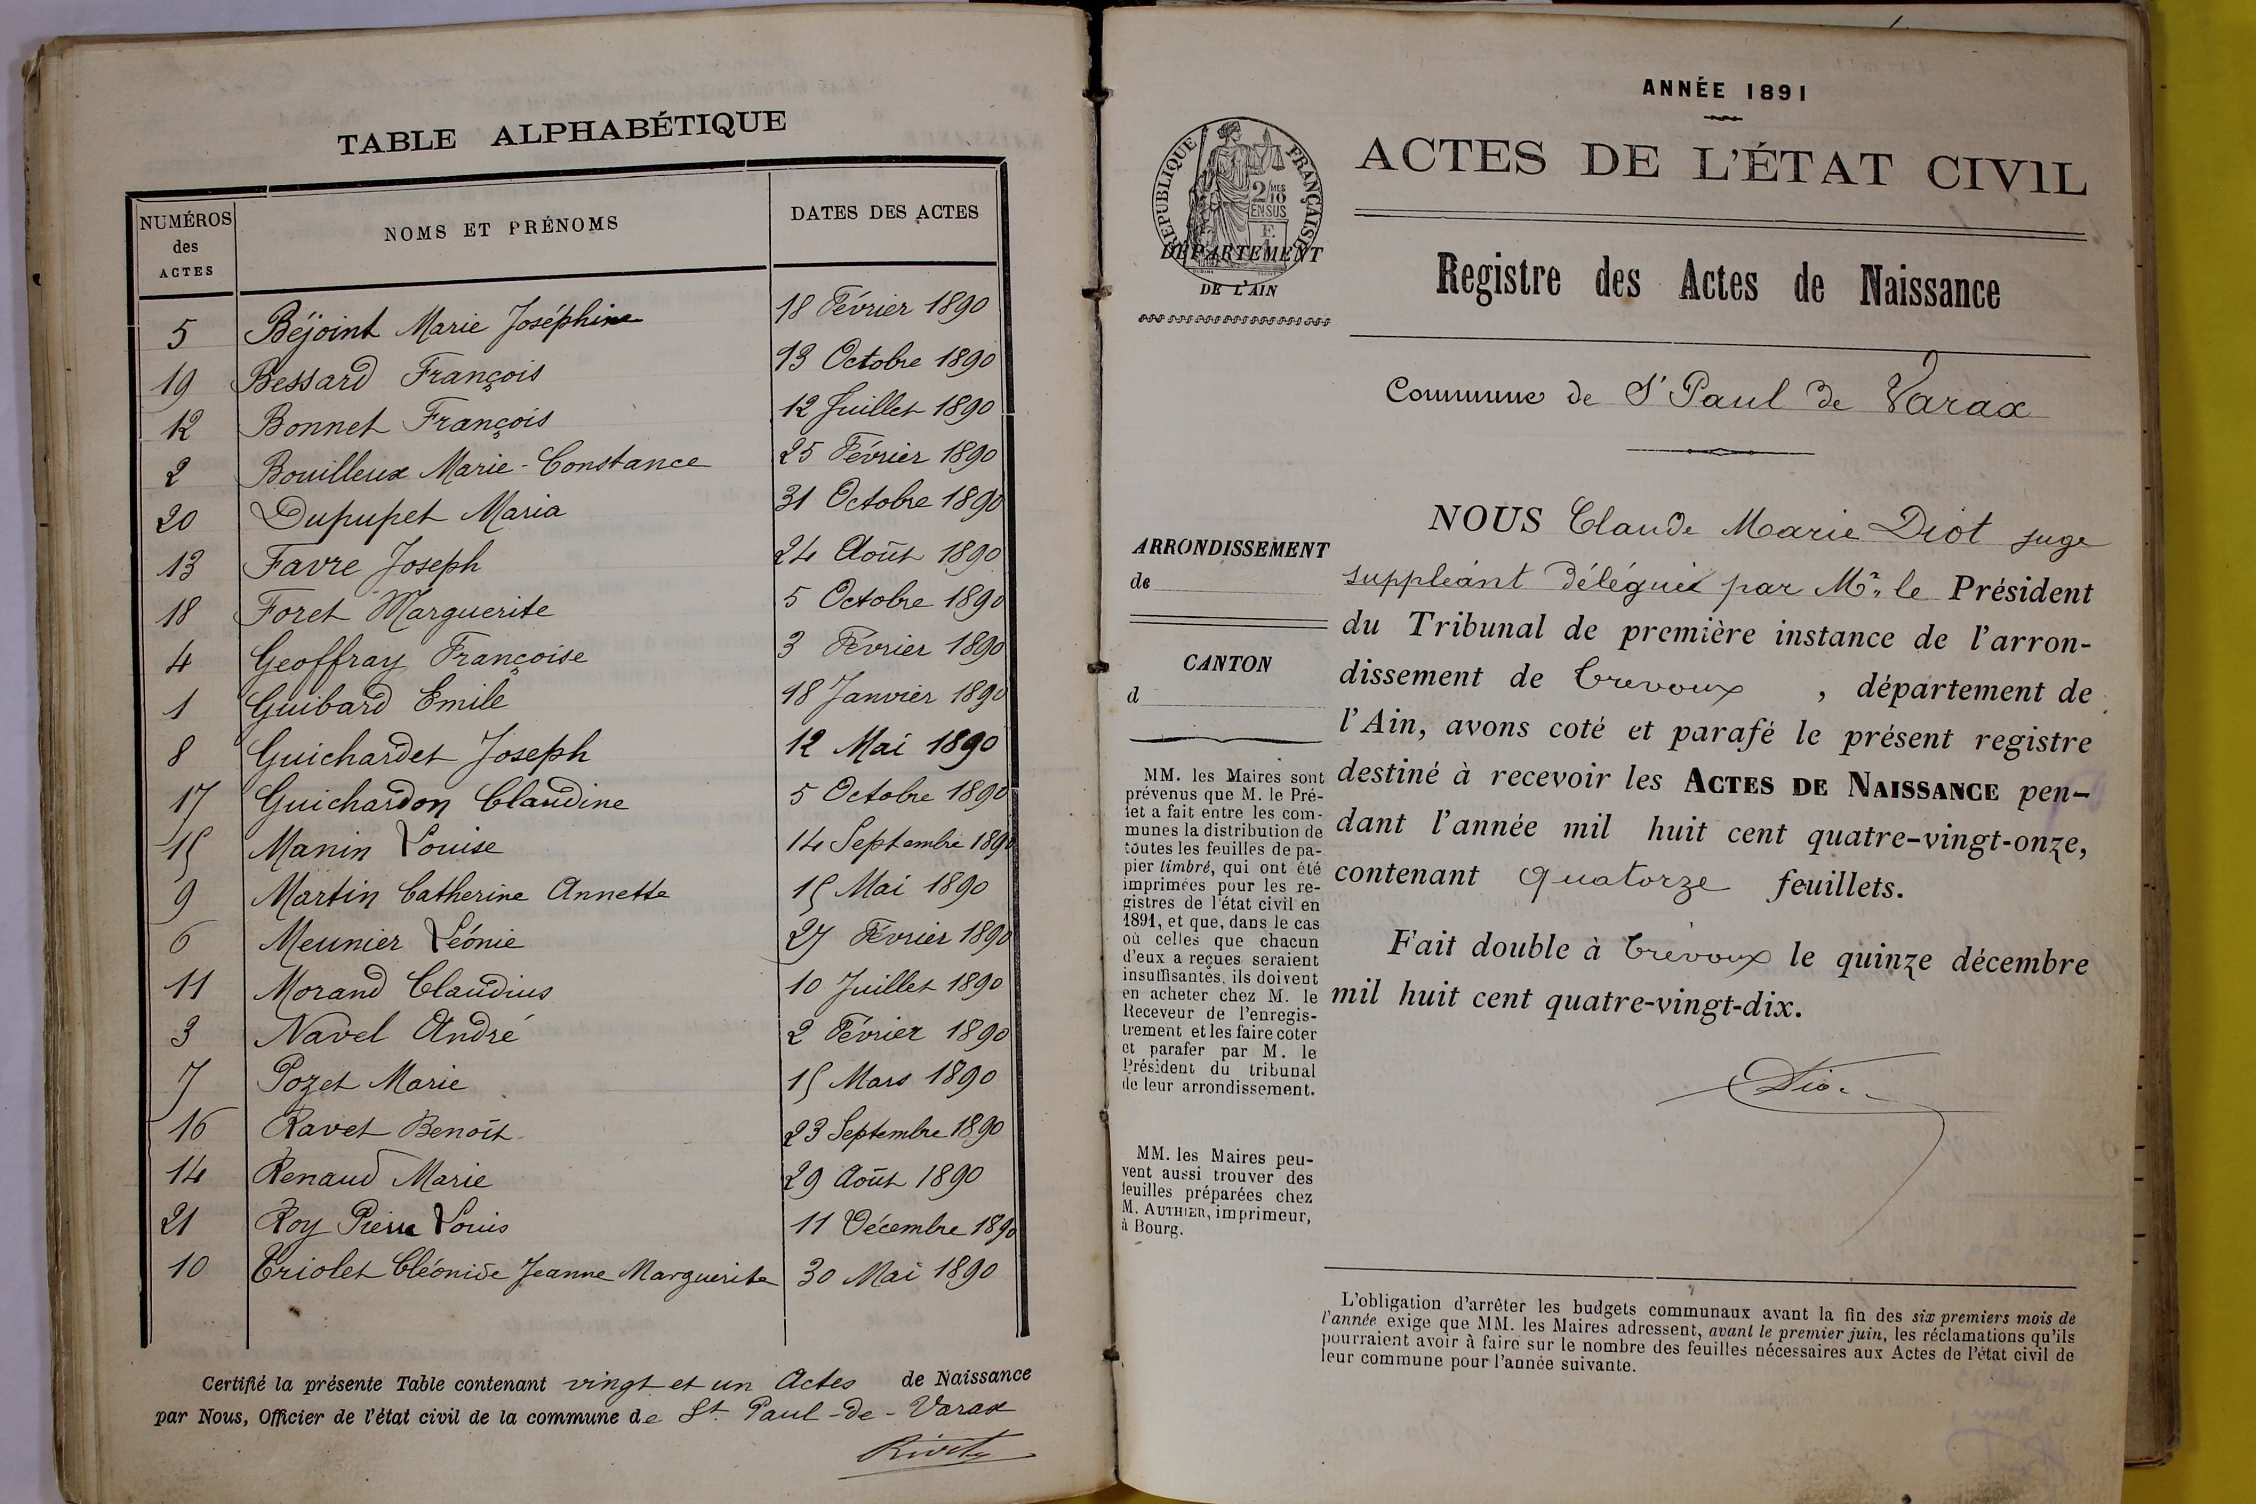 TABLE ALPHABÉTIQUE
NUMÉROS des ACTES NOMS ET PRÉNOMS DATES DES ACTES
5 Béjoint Marie Joséphine 18 Février 1890
19 Bessard François 13 Octobre 1890
12 Bonnet François 12 Juillet 1890
2 Bouilleux Marie-Constance 25 Février 1890
20 Dupupet Maria 31 Octobre 1890
13 Favre Joseph 24 Août 1890
18 Foret Marguerite 5 Octobre 1890
4 Geoffray Françoise 3 Février 1890
1 Guibard Emile 18 Janvier 1890
8 Guichardet Joseph 12 Mai 1890
17 Guichardon Claudine 5 Octobre 1890
15 Manin Louise 14 Septembre 1890
9 Martin Catherine Annette 15 Mai 1890
6 Meunier Léonie 27 Février 1890
11 Morand Claudius 10 Juillet 1890
3 Navel André 2 Février 1890
7 Pozet Marie 15 Mars 1890
16 Ravet Benoît 23 Septembre 1890
14 Renaud Marie 29 Août 1890
21 Roy Pierre Louis 11 Décembre 1890
10 Triolet Cléonide Jeanne Marguerite 30 Mai 1890
Certifié la présente Table contenant vingt et un Actes de Naissance
par Nous, Officier de l'état civil de la commune de St. Paul-de-Varax
ANNÉE 1891
ACTES DE L'ÉTAT CIVIL
RÉPUBLIQUE FRANÇAISE
2/10 MES
EN SUS
DÉPARTEMENT
DE L'AIN
Registre des Actes de Naissance
Commune de St Paul de Varax
ARRONDISSEMENT
de
CANTON
d
MM. les Maires sont
prévenus que M. le Pré-
fet a fait entre les com-
munes la distribution de
toutes les feuilles de pa-
pier timbré, qui ont été
imprimées pour les re-
gistres de l'état civil en
1891, et que, dans le cas
où celles que chacun
d'eux a reçues seraient
insuffisantes, ils doivent
en acheter chez M. le
Receveur de l'enregis-
trement et les faire coter
et parafer par M. le
Président du tribunal
de leur arrondissement.
MM. les Maires peu-
vent aussi trouver des
feuilles préparées chez
M. AUTHIER, imprimeur,
à Bourg.
NOUS Claude Marie Diot juge
suppléant délégué par Mr. le Président
du Tribunal de première instance de l'arron-
dissement de Trevoux, département de
l'Ain, avons coté et parafé le présent registre
destiné à recevoir les ACTES DE NAISSANCE pen-
dant l'année mil huit cent quatre-vingt-onze,
contenant quatorze feuillets.
Fait double à Trévoux le quinze décembre
mil huit cent quatre-vingt-dix.
L'obligation d'arrêter les budgets communaux avant la fin des six premiers mois de
l'année exige que MM. les Maires adressent, avant le premier juin, les réclamations qu'ils
pourraient avoir à faire sur le nombre des feuilles nécessaires aux Actes de l'état civil de
leur commune pour l'année suivante.